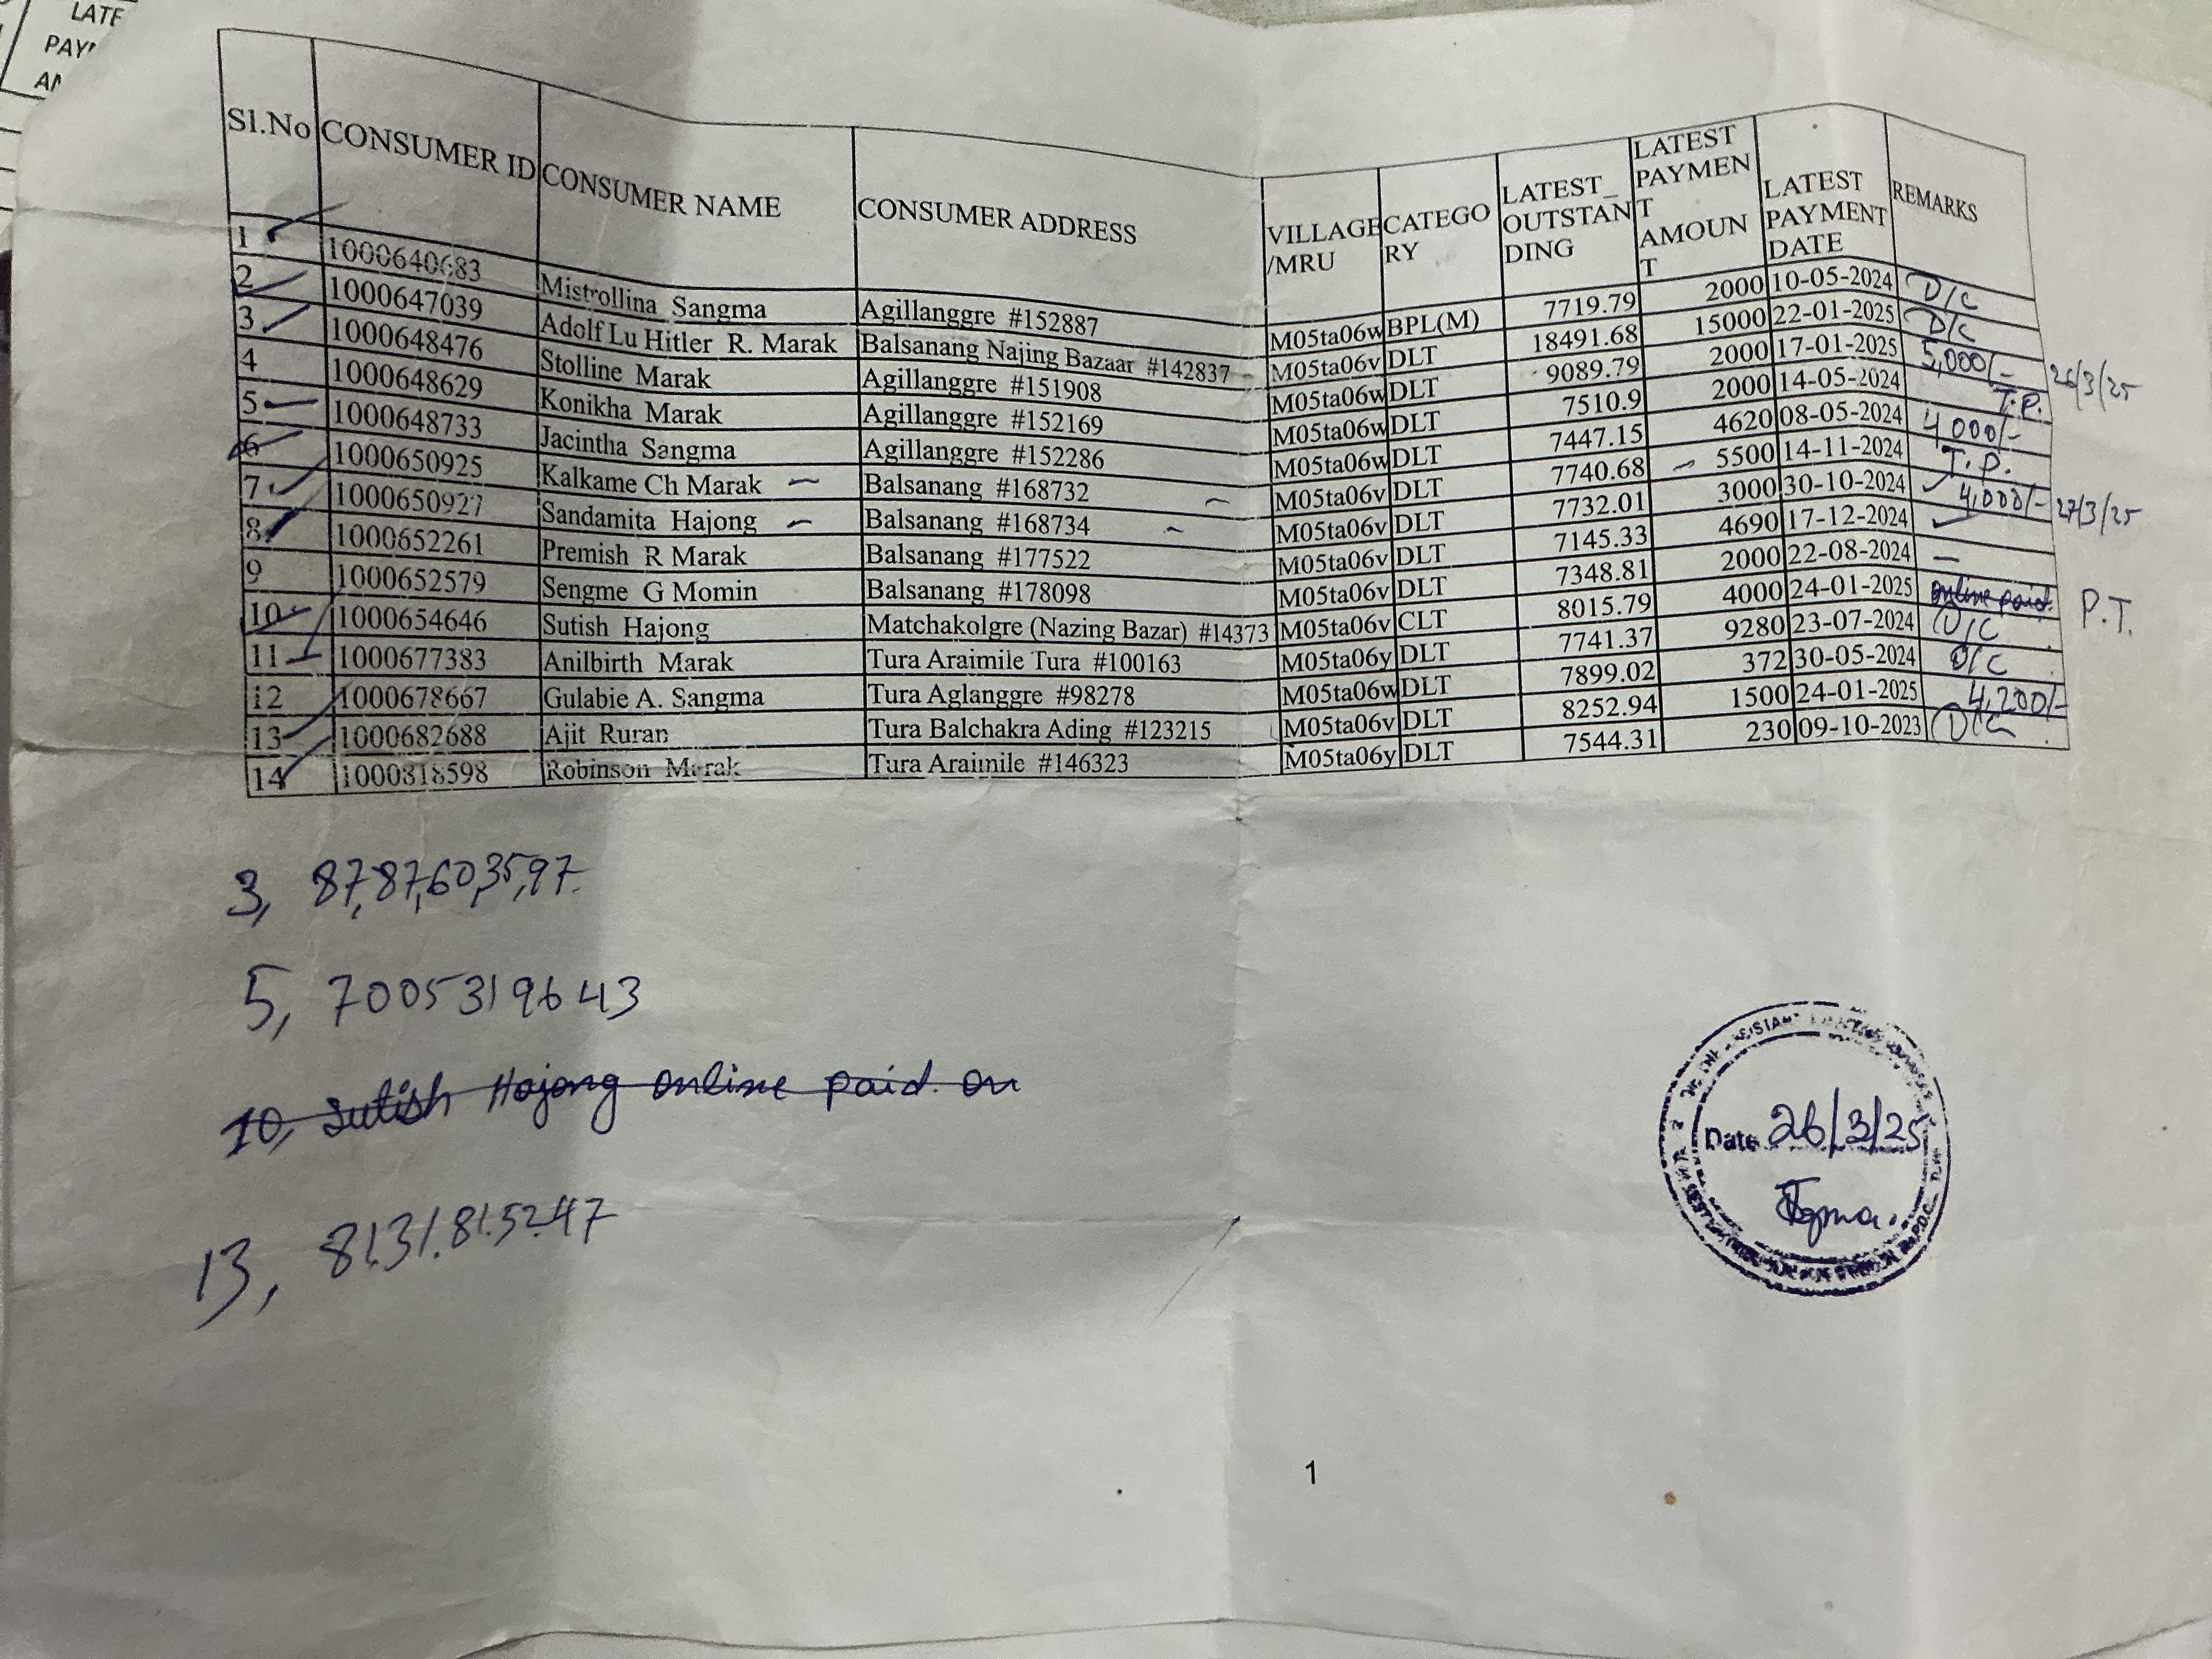 LATE
PAY
AM
Sl.No CONSUMER ID CONSUMER NAME CONSUMER ADDRESS VILLAGE/MRU CATEGORY LATEST_OUTSTANDING LATEST PAYMENT AMOUNT LATEST PAYMENT DATE REMARKS
1 1000640683 Mistrollina Sangma Agillanggre #152887 M05ta06w BPL(M) 7719.79 2000 10-05-2024 D/C
2 1000647039 Adolf Lu Hitler R. Marak Balsanang Najing Bazaar #142837 M05ta06v DLT 18491.68 15000 22-01-2025 D/C
3 1000648476 Stolline Marak Agillanggre #151908 M05ta06w DLT 9089.79 2000 17-01-2025 5,000/- 26/3/25
4 1000648629 Konikha Marak Agillanggre #152169 M05ta06w DLT 7510.9 2000 14-05-2024 T.P.
5 1000648733 Jacintha Sangma Agillanggre #152286 M05ta06w DLT 7447.15 4620 08-05-2024 4000/-
6 1000650925 Kalkame Ch Marak Balsanang #168732 M05ta06v DLT 7740.68 5500 14-11-2024 T.P.
7 1000650927 Sandamita Hajong Balsanang #168734 M05ta06v DLT 7732.01 3000 30-10-2024 4,000/- 27/3/25
8 1000652261 Premish R Marak Balsanang #177522 M05ta06v DLT 7145.33 4690 17-12-2024
9 1000652579 Sengme G Momin Balsanang #178098 M05ta06v DLT 7348.81 2000 22-08-2024 —
10 1000654646 Sutish Hajong Matchakolgre (Nazing Bazar) #14373 M05ta06v CLT 8015.79 4000 24-01-2025 online paid. P.T.
11 1000677383 Anilbirth Marak Tura Araimile Tura #100163 M05ta06y DLT 7741.37 9280 23-07-2024 D/C
12 1000678667 Gulabie A. Sangma Tura Aglanggre #98278 M05ta06w DLT 7899.02 372 30-05-2024 D/C
13 1000682688 Ajit Ruran Tura Balchakra Ading #123215 M05ta06v DLT 8252.94 1500 24-01-2025 4,200/-
14 1000818598 Robinson Marak Tura Araimile #146323 M05ta06y DLT 7544.31 230 09-10-2023 D/C
3, 87,87,60,35,97.
5, 7005319643
10, Sutish Hajong online paid on
13, 81.31.81.52.47
Date 26/3/25
1